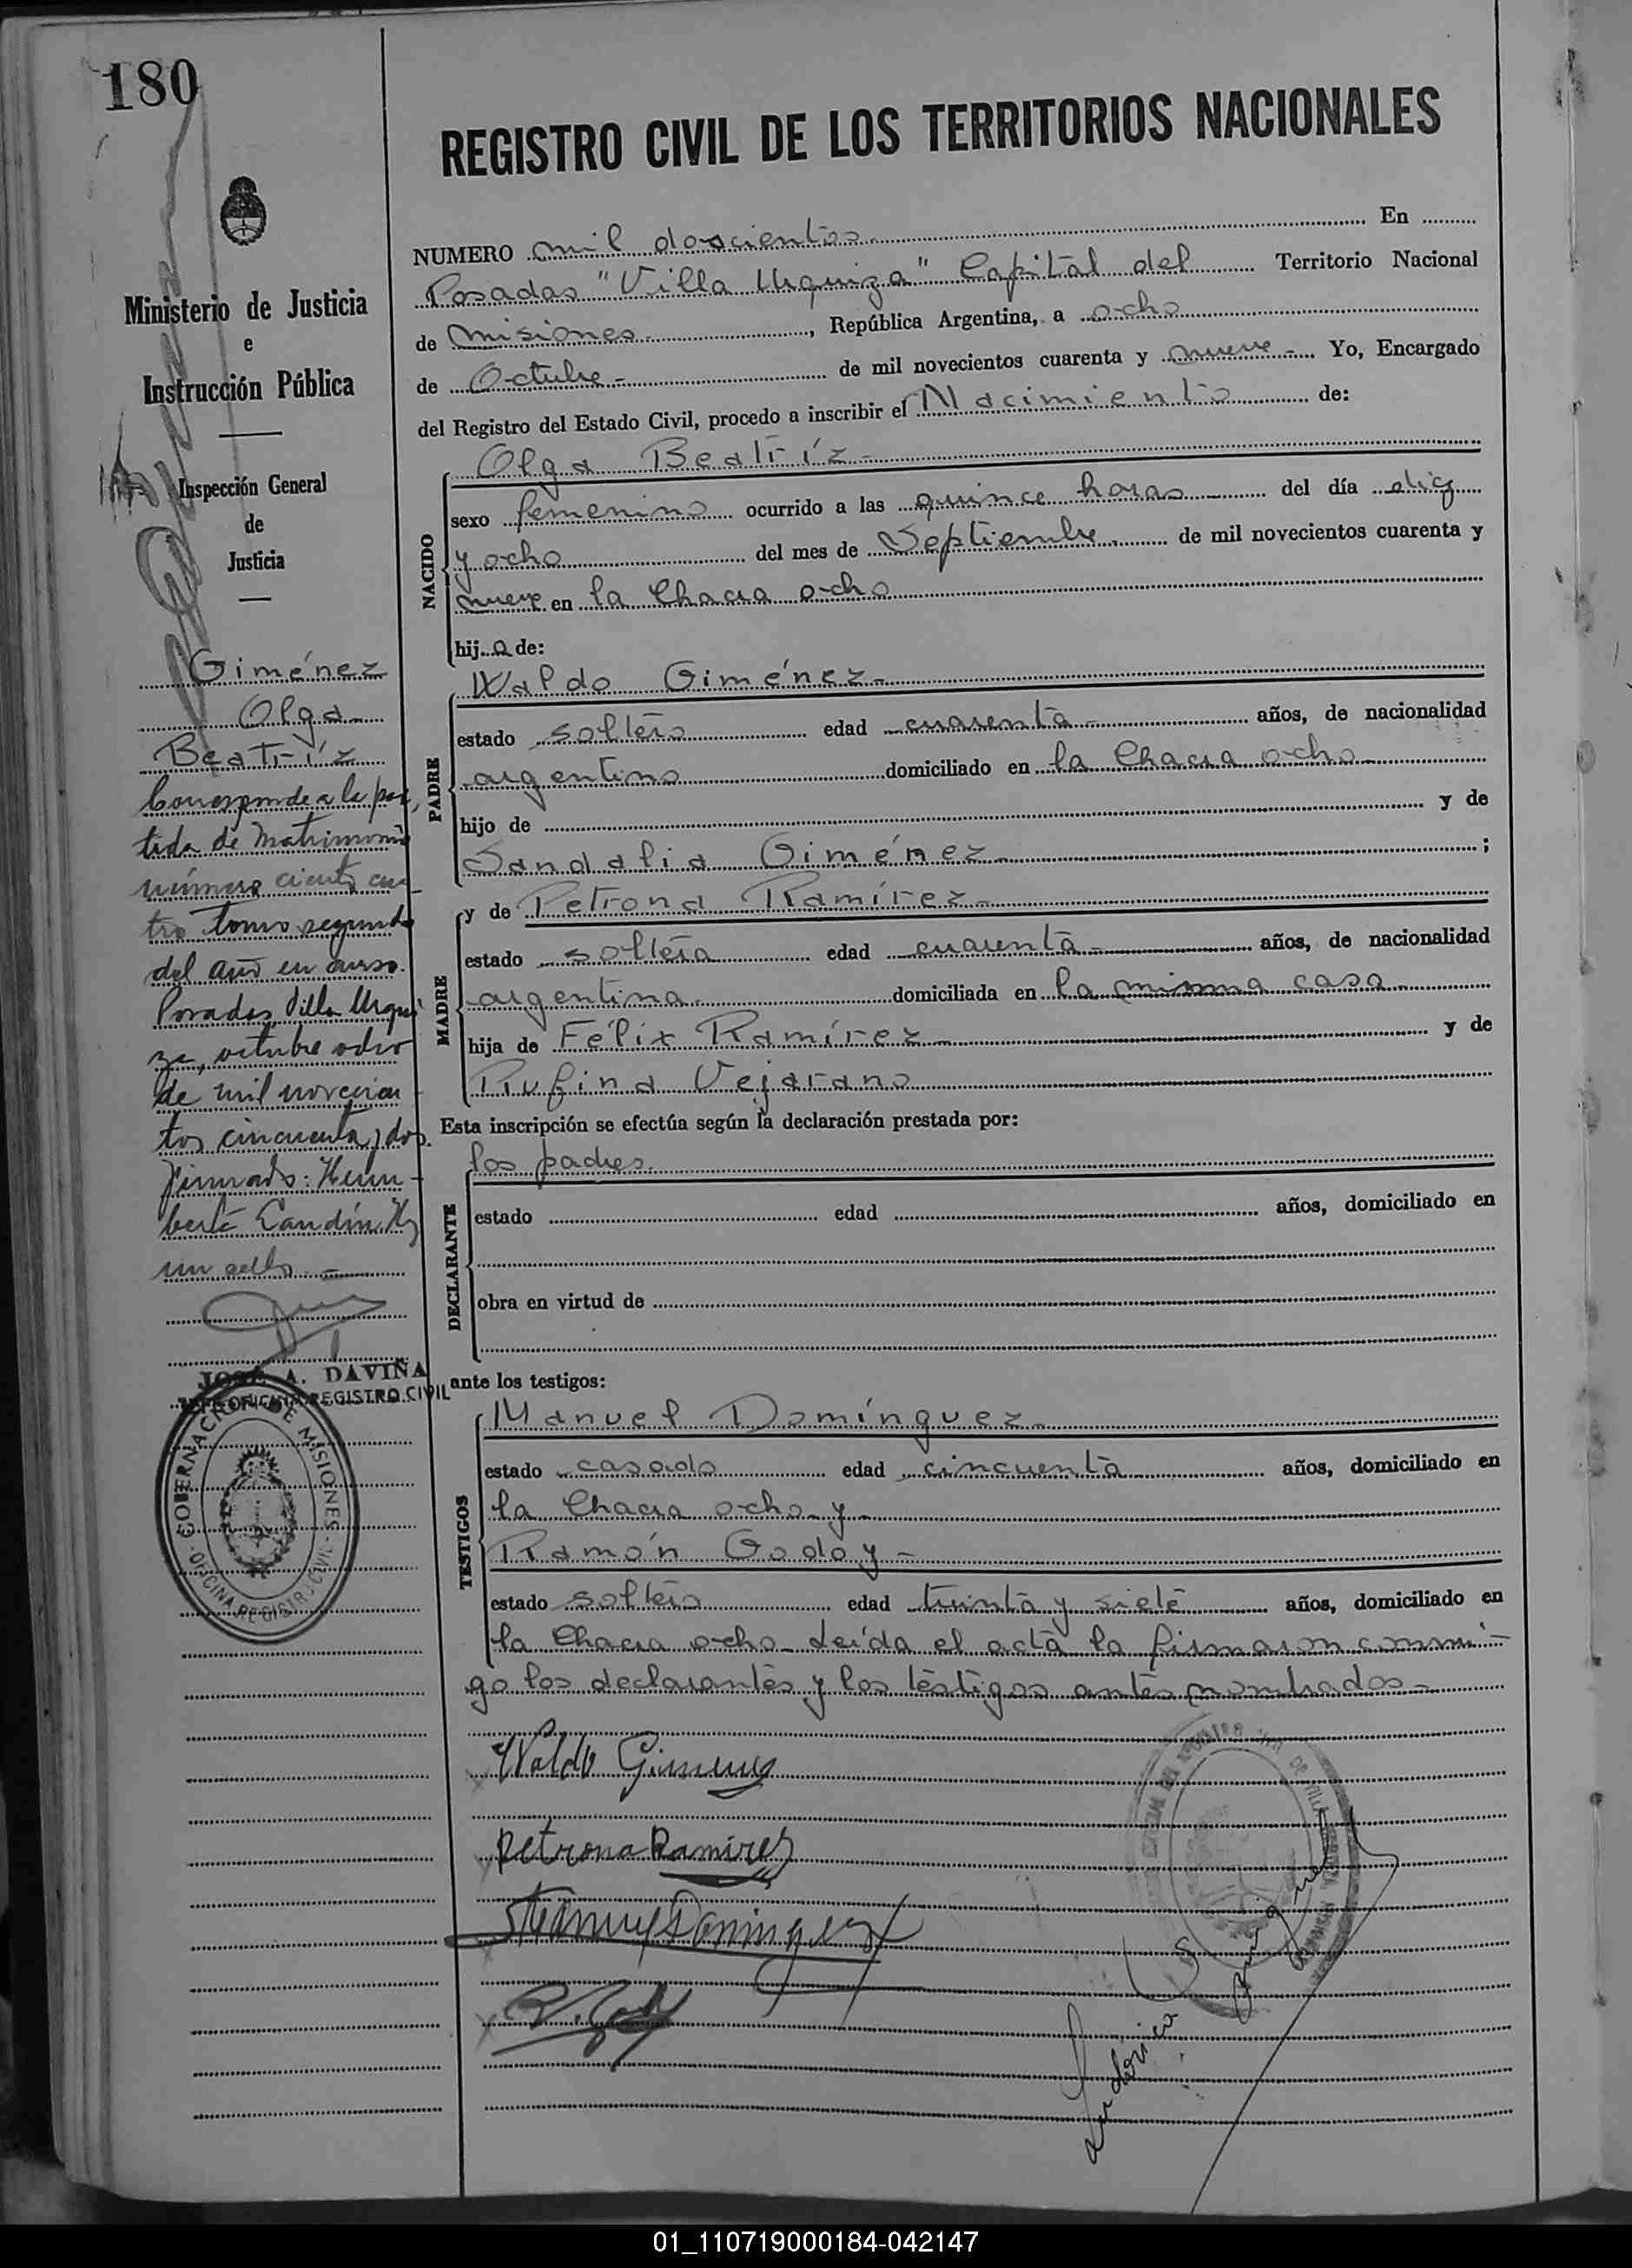 180
REGISTRO CIVIL DE LOS TERRITORIOS NACIONALES
Ministerio de Justicia
e
Instrucción Pública
Inspección General
de
Justicia
Giménez
Olga
Beatríz
Corresponde a la par
tida de Matrimonio
número ciento cua
tro tomo segundo
del año en curso.
Posadas, Villa Urqui
za, octubre ocho
de mil novecien
tos cincuenta y dos.
Firmado: Hum
berto Landín. Hy
un sello.-
JOSÉ A. DAVIÑA
REGISTRO CIVIL
GOBERNACION DE MISIONES - OFICINA REGISTR. CIVIL -
NUMERO mil doscientos. En
Posadas "Villa Urquiza" Capital del Territorio Nacional
de Misiones, República Argentina, a ocho
de Octubre - de mil novecientos cuarenta y nueve -. Yo, Encargado
del Registro del Estado Civil, procedo a inscribir el Nacimiento de:
NACIDO
Olga Beatríz -
sexo femenino ocurrido a las quince horas del día diez
y ocho del mes de Septiembre de mil novecientos cuarenta y
nueve en la Chacra ocho
hija de:
PADRE
Waldo Giménez -
estado soltero edad cuarenta - años, de nacionalidad
argentino domiciliado en la Chacra ocho
hijo de y de
Sandalia Giménez ;
MADRE
y de Petrona Ramírez -
estado soltera edad cuarenta - años, de nacionalidad
argentina domiciliada en la misma casa
hija de Félix Ramírez - y de
Rufina Vejarano
Esta inscripción se efectúa según la declaración prestada por:
DECLARANTE
los padres
estado edad años, domiciliado en
obra en virtud de
ante los testigos:
TESTIGOS
Manuel Domínguez -
estado casado edad cincuenta años, domiciliado en
la Chacra ocho y
Ramón Godoy -
estado soltero edad treinta y siete años, domiciliado en
la Chacra ocho - Leída el acta la firmaron conmi-
go los declarantes y los testigos antes nombrados -
Waldo Gimenez
Petrona Ramirez
Manuel Dominguez
R. Godoy
01_110719000184-042147